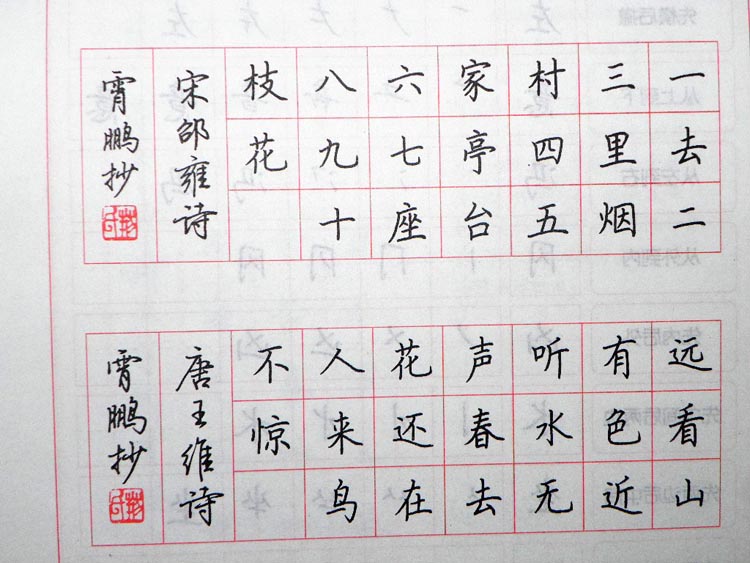 一去二
三里烟
村四五
家亭台
六七座
八九十
枝花
宋邵雍诗
霄鹏抄
远看山
有色近
听水无
声春去
花还在
人来鸟
不惊
唐王维诗
霄鹏抄